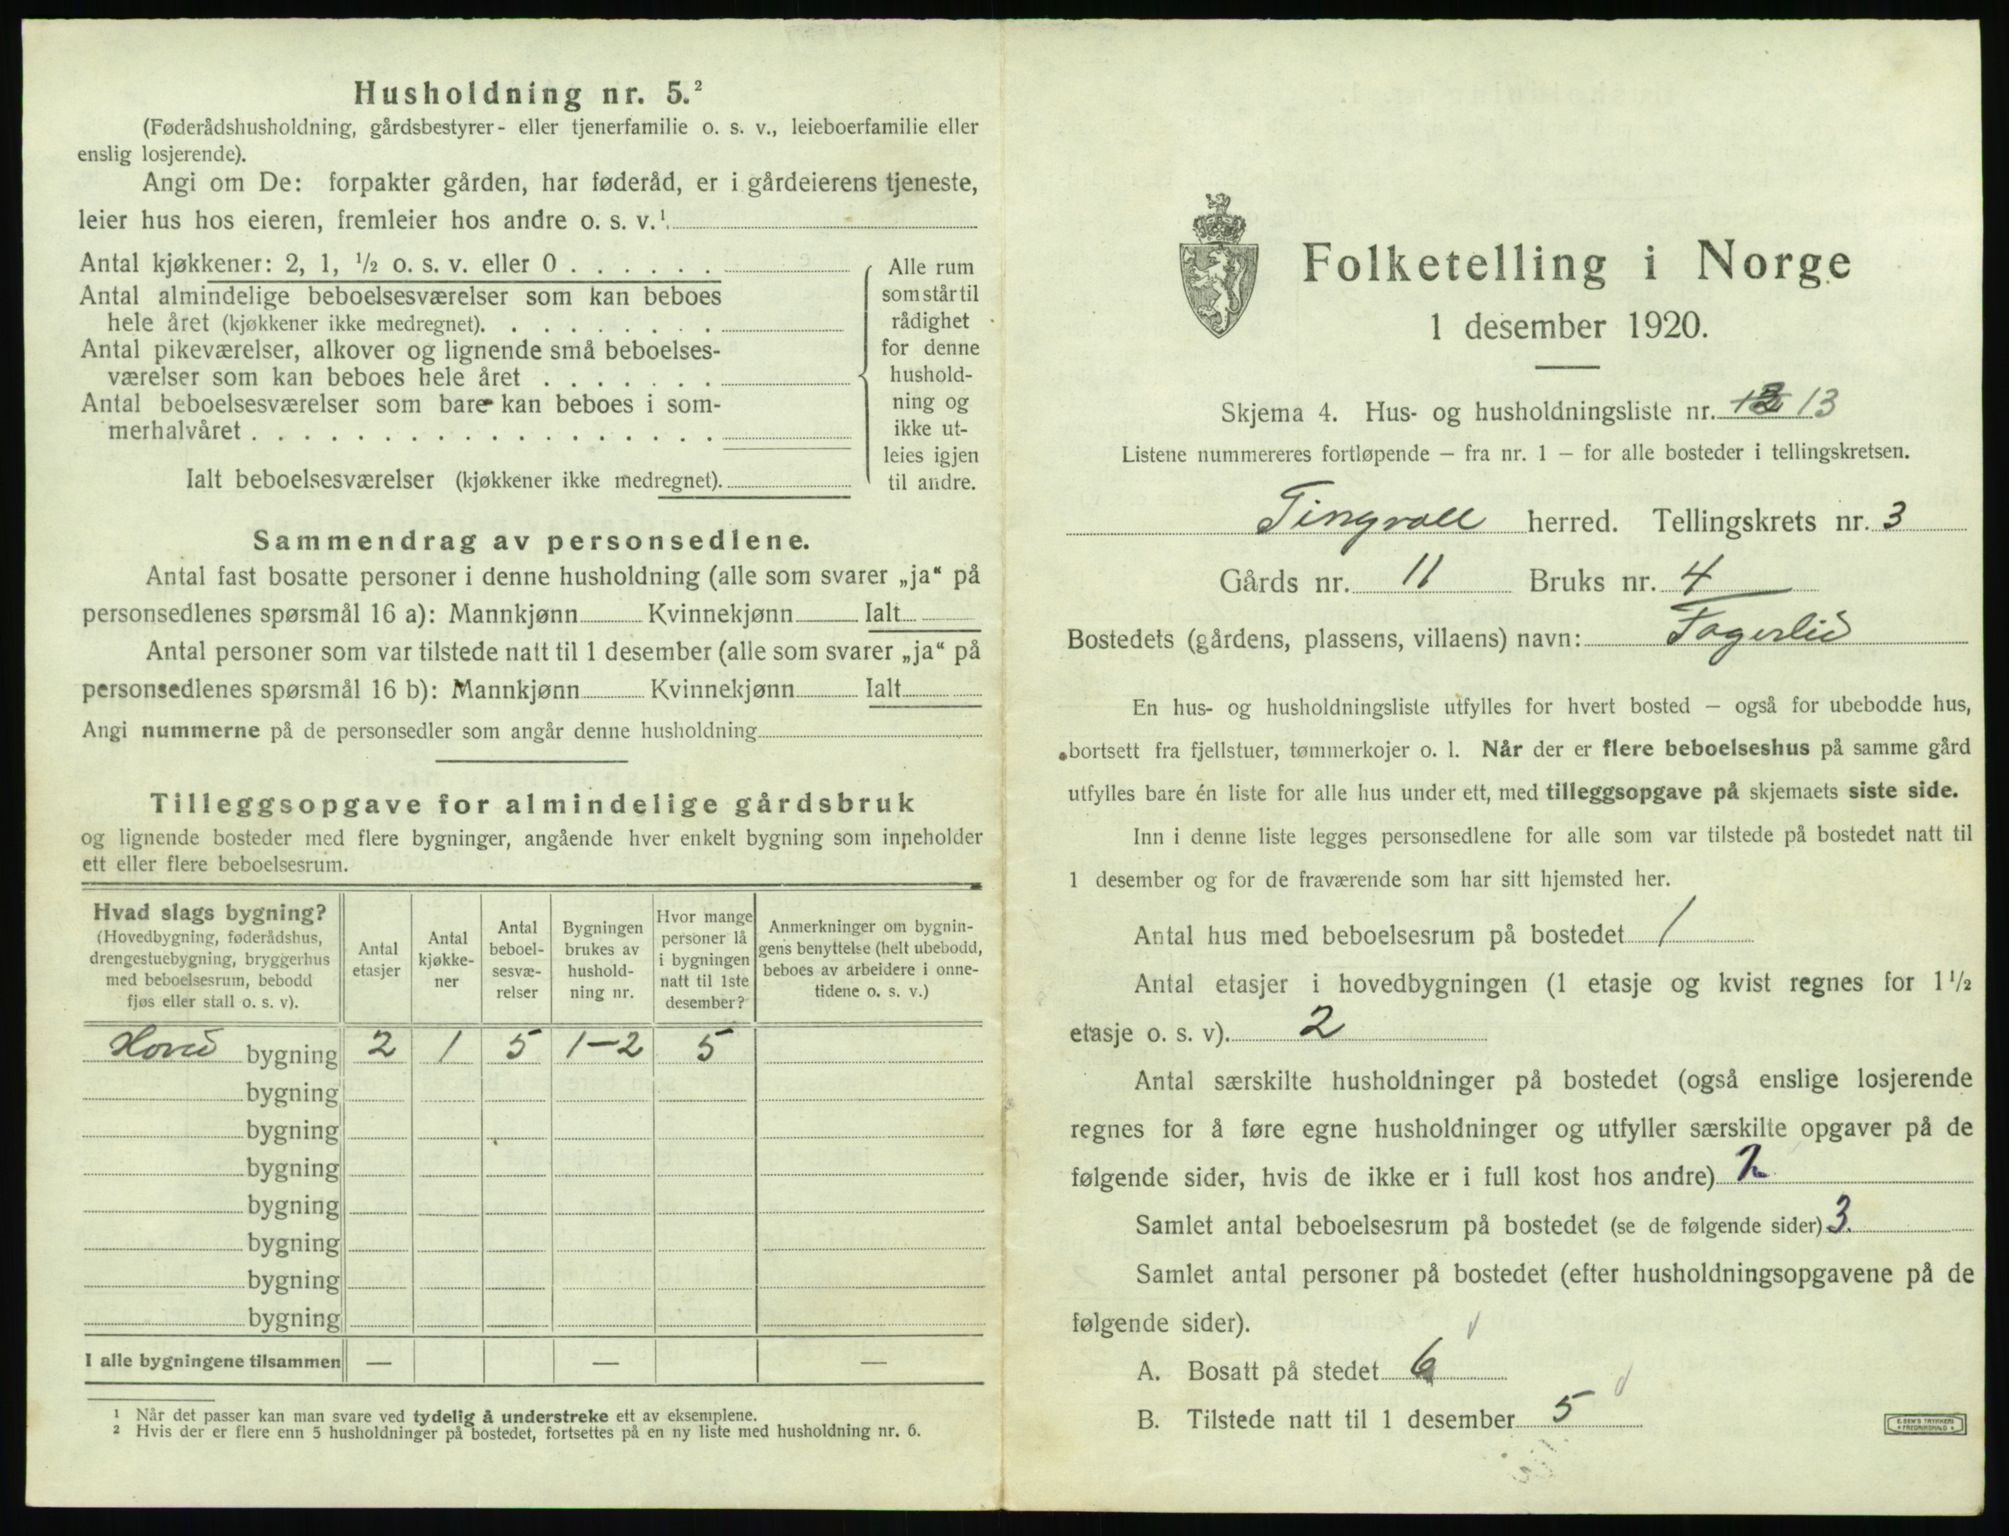 Husholdning nr. 5.²
(Føderådshusholdning, gårdsbestyrer- eller tjenerfamilie o. s. v., leieboerfamilie eller
enslig losjerende).
Angi om De: forpakter gården, har føderåd, er i gårdeierens tjeneste,
leier hus hos eieren, fremleier hos andre o. s. v.¹
Antal kjøkkener: 2, 1, ½ o. s. v. eller 0 . . . . . .
Antal almindelige beboelsesværelser som kan beboes
hele året (kjøkkener ikke medregnet). . . . . . . . .
Antal pikeværelser, alkover og lignende små beboelses-
værelser som kan beboes hele året . . . . . . .
Antal beboelsesværelser som bare kan beboes i som-
merhalvåret . . . . . . . . . . . . . . . . . .
Ialt beboelsesværelser (kjøkkener ikke medregnet).
Alle rum
som står til
rådighet
for denne
hushold-
ning og
ikke ut-
leies igjen
til andre.
Sammendrag av personsedlene.
Antal fast bosatte personer i denne husholdning (alle som svarer „ja“ på
personsedlenes spørsmål 16 a): Mannkjønn Kvinnekjønn Ialt
Antal personer som var tilstede natt til 1 desember (alle som svarer „ja“ på
personsedlenes spørsmål 16 b): Mannkjønn Kvinnekjønn Ialt
Angi nummerne på de personsedler som angår denne husholdning
Tilleggsopgave for almindelige gårdsbruk
og lignende bosteder med flere bygninger, angående hver enkelt bygning som inneholder
ett eller flere beboelsesrum.
Hvad slags bygning?
(Hovedbygning, føderådshus,
drengestuebygning, bryggerhus
med beboelsesrum, bebodd
fjøs eller stall o. s. v).
Antal
etasjer
Antal
kjøkke-
ner
Antal
beboel-
sesvæ-
relser
Bygningen
brukes av
hushold-
ning nr.
Hvor mange
personer lå
i bygningen
natt til 1ste
desember?
Anmerkninger om bygnin-
gens benyttelse (helt ubebodd,
beboes av arbeidere i onne-
tidene o. s. v.)
Hoved bygning 2 1 5 1-2 5
bygning
bygning
bygning
bygning
bygning
bygning
bygning
I alle bygningene tilsammen — — —
¹ Når det passer kan man svare ved tydelig å understreke ett av eksemplene.
² Hvis der er flere enn 5 husholdninger på bostedet, fortsettes på en ny liste med husholdning nr. 6.
Folketelling i Norge
1 desember 1920.
Skjema 4. Hus- og husholdningsliste nr. 13
Listene nummereres fortløpende – fra nr. 1 – for alle bosteder i tellingskretsen.
Tingvoll herred. Tellingskrets nr. 3
Gårds nr. 11 Bruks nr. 4
Bostedets (gårdens, plassens, villaens) navn: Fagerlid
En hus- og husholdningsliste utfylles for hvert bosted – også for ubebodde hus,
bortsett fra fjellstuer, tømmerkojer o. l. Når der er flere beboelseshus på samme gård
utfylles bare én liste for alle hus under ett, med tilleggsopgave på skjemaets siste side.
Inn i denne liste legges personsedlene for alle som var tilstede på bostedet natt til
1 desember og for de fraværende som har sitt hjemsted her.
Antal hus med beboelsesrum på bostedet 1
Antal etasjer i hovedbygningen (1 etasje og kvist regnes for 1½
etasje o. s. v). 2
Antal særskilte husholdninger på bostedet (også enslige losjerende
regnes for å føre egne husholdninger og utfyller særskilte opgaver på de
følgende sider, hvis de ikke er i full kost hos andre) 2
Samlet antal beboelsesrum på bostedet (se de følgende sider) 3.
Samlet antal personer på bostedet (efter husholdningsopgavene på de
følgende sider).
A. Bosatt på stedet 6
B. Tilstede natt til 1 desember 5